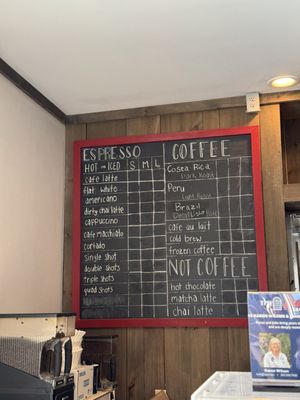 ESPRESSO
HOT or ICED S M L
cafe latte
flat white
americano
dirty chai latte
cappuccino
cafe macchiato
cortado
single shot
double shots
triple shots
quad shots
COFFEE
Costa Rica
Dark Roast
Peru
Light Roast
Brazil
cafe au lait
cold brew
frozen coffee
NOT COFFEE
hot chocolate
matcha latte
chai latte